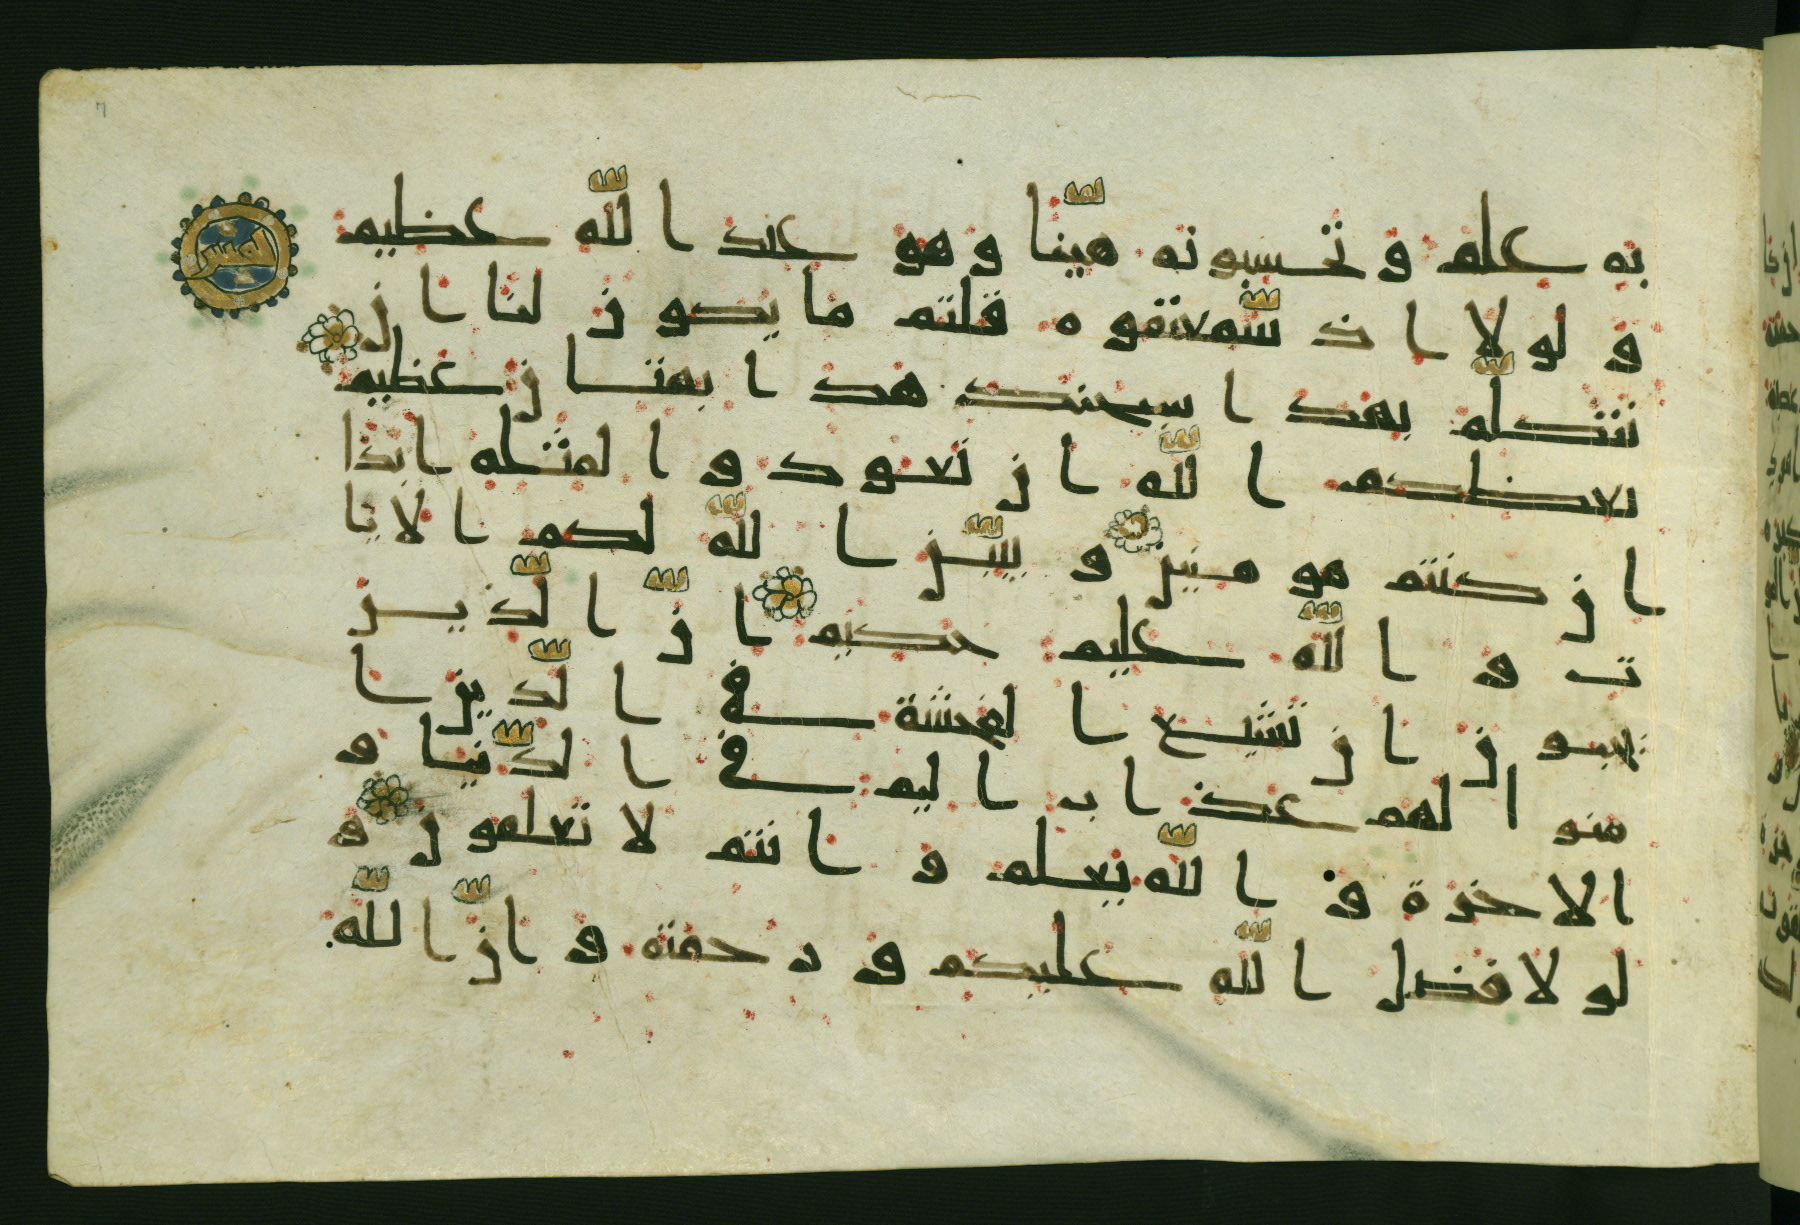 به علم وتحسبونه هينا وهو عند الله عظيم
ولولا اذ سمعتموه قلتم ما يكون لنا ان
نتكلم بهذا سبحنك هذا بهتان عظيم
يعظكم الله ان تعودوا لمثله ابدا
ان كنتم مومنين ويبين الله لكم الايا
ت والله عليم حكيم ان الذين
يحبون ان تشيع الفحشة في الذين ا
منوا لهم عذاب اليم في الدنيا و
الاخرة والله يعلم وانتم لا تعلمون و
لولا فضل الله عليكم ورحمته وان الله